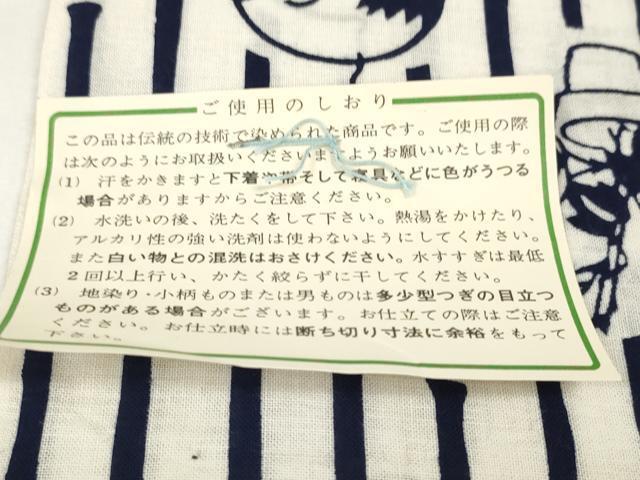 ご使用のしおり
この品は伝統の技術で染められた商品です。ご使用の際
は次のようにお取扱いくださいますようお願いいたします。
(1) 汗をかきますと下着や帯そして寝具などに色がうつる
場合がありますからご注意ください。
(2) 水洗いの後、洗たくをして下さい。熱湯をかけたり、
アルカリ性の強い洗剤は使わないようにしてください。
また白い物との混洗はおさけください。水すすぎは最低
2回以上行い、かたく絞らずに干してください。
(3) 地染り・小柄ものまたは男ものは多少型つぎの目立つ
ものがある場合がございます。お仕立ての際はご注意
ください。お仕立時には断ち切り寸法に余裕をもって
下さい。